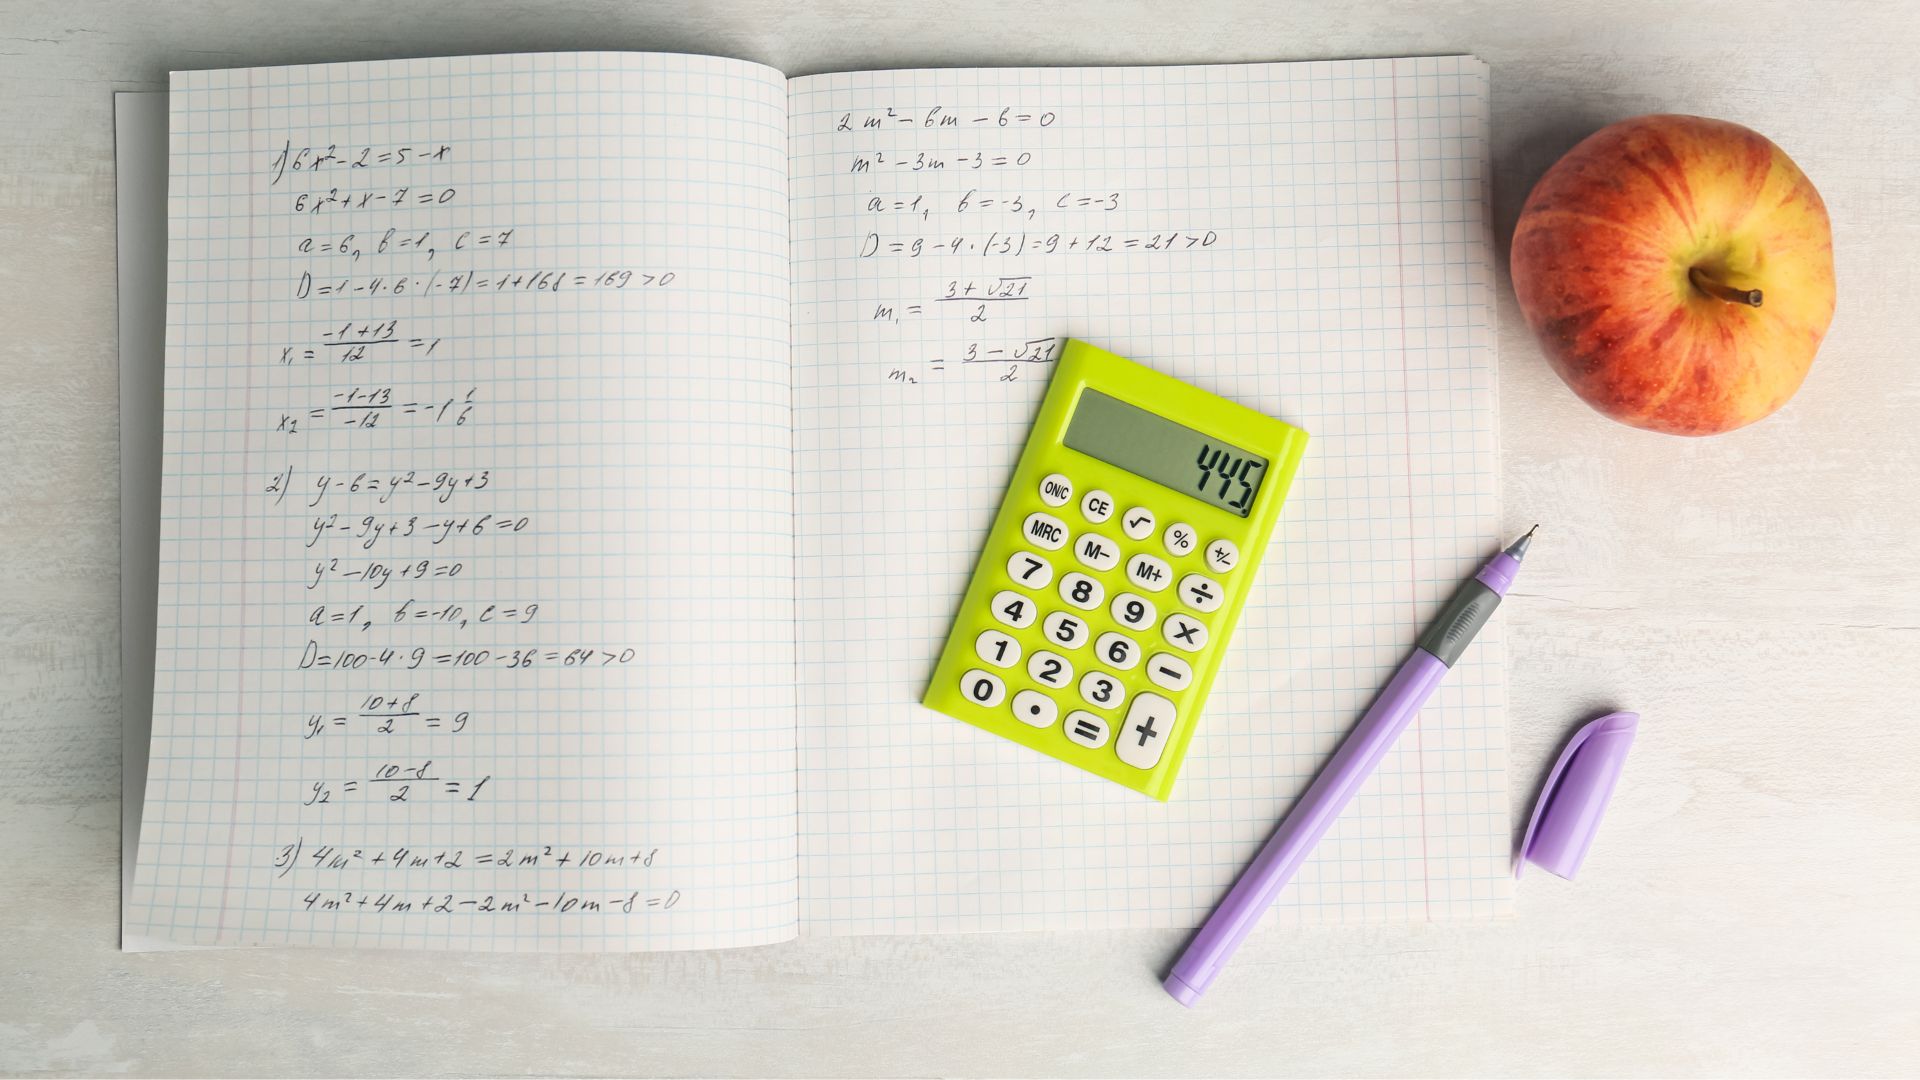 1) 6x² - 2 = 5 - x
6x² + x - 7 = 0
a = 6, b = 1, c = 7
D = 1 - 4·6·(-7) = 1 + 168 = 169 > 0
x₁ = (-1 + 13)/12 = 1
x₂ = (-1 - 13)/-12 = -1 1/6
2) y - 6 = y² - 9y + 3
y² - 9y + 3 - y + 6 = 0
y² - 10y + 9 = 0
a = 1, b = -10, c = 9
D = 100 - 4·9 = 100 - 36 = 64 > 0
y₁ = (10 + 8)/2 = 9
y₂ = (10 - 8)/2 = 1
3) 4m² + 4m + 2 = 2m² + 10m + 8
4m² + 4m + 2 - 2m² - 10m - 8 = 0
2m² - 6m - 6 = 0
m² - 3m - 3 = 0
a = 1, b = -3, c = -3
D = 9 - 4·(-3) = 9 + 12 = 21 > 0
m₁ = (3 + √21)/2
m₂ = (3 - √21)/2
445.
ON/C CE √ % +/-
MRC M− M+ ÷
7 8 9 ×
4 5 6 −
1 2 3 +
0 . =